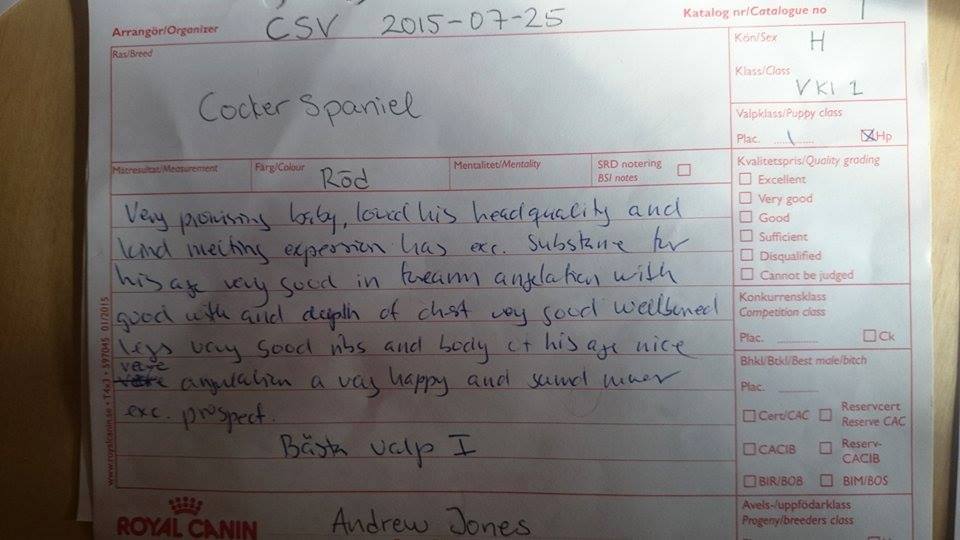 Arrangör/Organizer CSV 2015-07-25 Katalog nr/Catalogue no 1
Ras/Breed
Cocker Spaniel
Kön/Sex H
Klass/Class
VKl 1
Valpklass/Puppy class
Plac. 1 Hp
Mätresultat/Measurement Färg/Colour Röd Mentalitet/Mentality SRD notering
BSI notes
Very promising baby, loved his headquality and
kind melting experssion has exc. Substane for
his age very good in forearm anglation with
good with and depth of chest very good wellboned
legs very good ribs and body at his age nice
veare
angulation a vay happy and sound mover
exc. prospect.
Bästa valp I
Kvalitetspris/Quality grading
Excellent
Very good
Good
Sufficient
Disqualified
Cannot be judged
Konkurrensklass
Competition class
Plac. Ck
Bhkl/Btkl/Best male/bitch
Plac.
Cert/CAC Reservcert
Reserve CAC
CACIB Reserv-
CACIB
BIR/BOB BIM/BOS
Avels-/uppfödarklass
Progeny/breeders class
www.royalcanin.se • T4x3 • 597045 01/2015
ROYAL CANIN
Andrew Jones